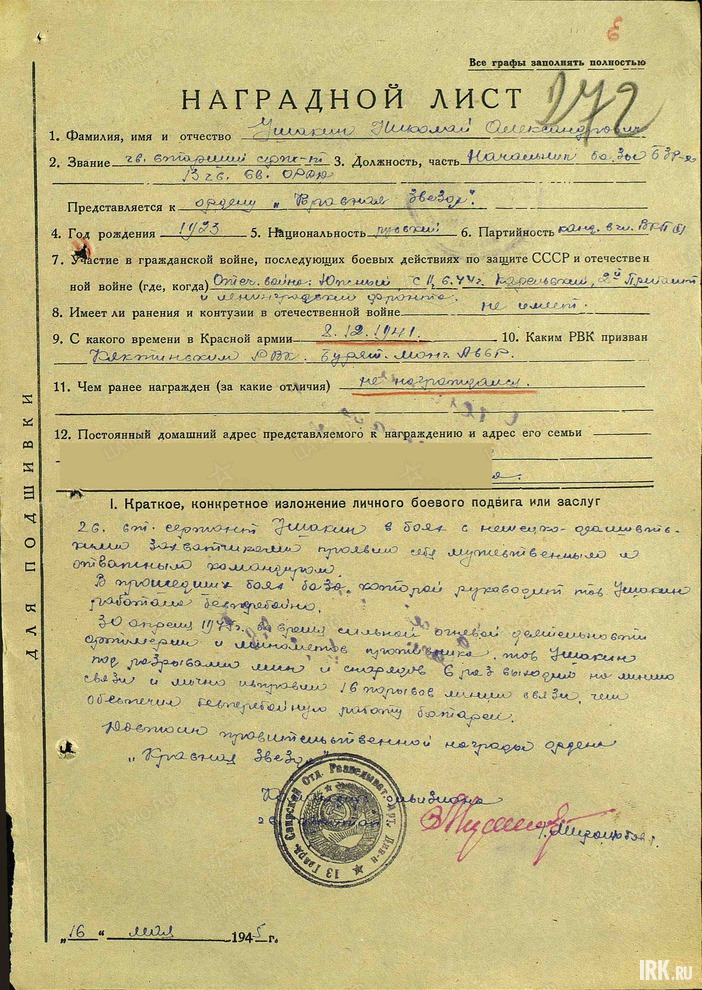 Все графы заполнять полностью
НАГРАДНОЙ ЛИСТ
272
1. Фамилия, имя и отчество Ушакин Николай Александрович
2. Звание гв. старший серж-т 3. Должность, часть Начальник базы БЗР-я
13 гв. св. ОРАД
Представляется к ордену „Красная Звезда".
4. Год рождения 1923 5. Национальность русский 6. Партийность канд. в чл. ВКП(б)
7. Участие в гражданской войне, последующих боевых действиях по защите СССР и отечествен
ной войне (где, когда) Отеч. война: Южный с 11.6.44г. Карельский, 2й Прибалт
и ленинградский фронта.
8. Имеет ли ранения и контузии в отечественной войне не имеет.
9. С какого времени в Красной армии 8.12.1941. 10. Каким РВК призван
Кяхтинским РВК. Бурят. Монг. АССР.
11. Чем ранее награжден (за какие отличия) не награждался.
12. Постоянный домашний адрес представляемого к награждению и адрес его семьи
I. Краткое, конкретное изложение личного боевого подвига или заслуг
Гв. ст. сержант Ушакин в боях с немецко-фашистс-
кими захватчиками проявил себя мужественным и
отважным командиром.
В прошедших боях база, которой руководит тов Ушакин
работала бесперебойно.
30 апреля 1945г. во время сильной огневой деятельности
артилерии и минометов противника, тов Ушакин
под разрывами мин и снарядов 6 раз выходил на линию
связи и лично исправил 16 порывов линии связи, чем
обеспечил бесперебойную работу батареи.
Достоин правительственной награды ордена
„Красная Звезда"
дивизиона
13 Гвард. Свирской Отд. Разведыват. Арт. Див-н
„16" мая 1945 г.
ДЛЯ ПОДШИВКИ
IRK.RU